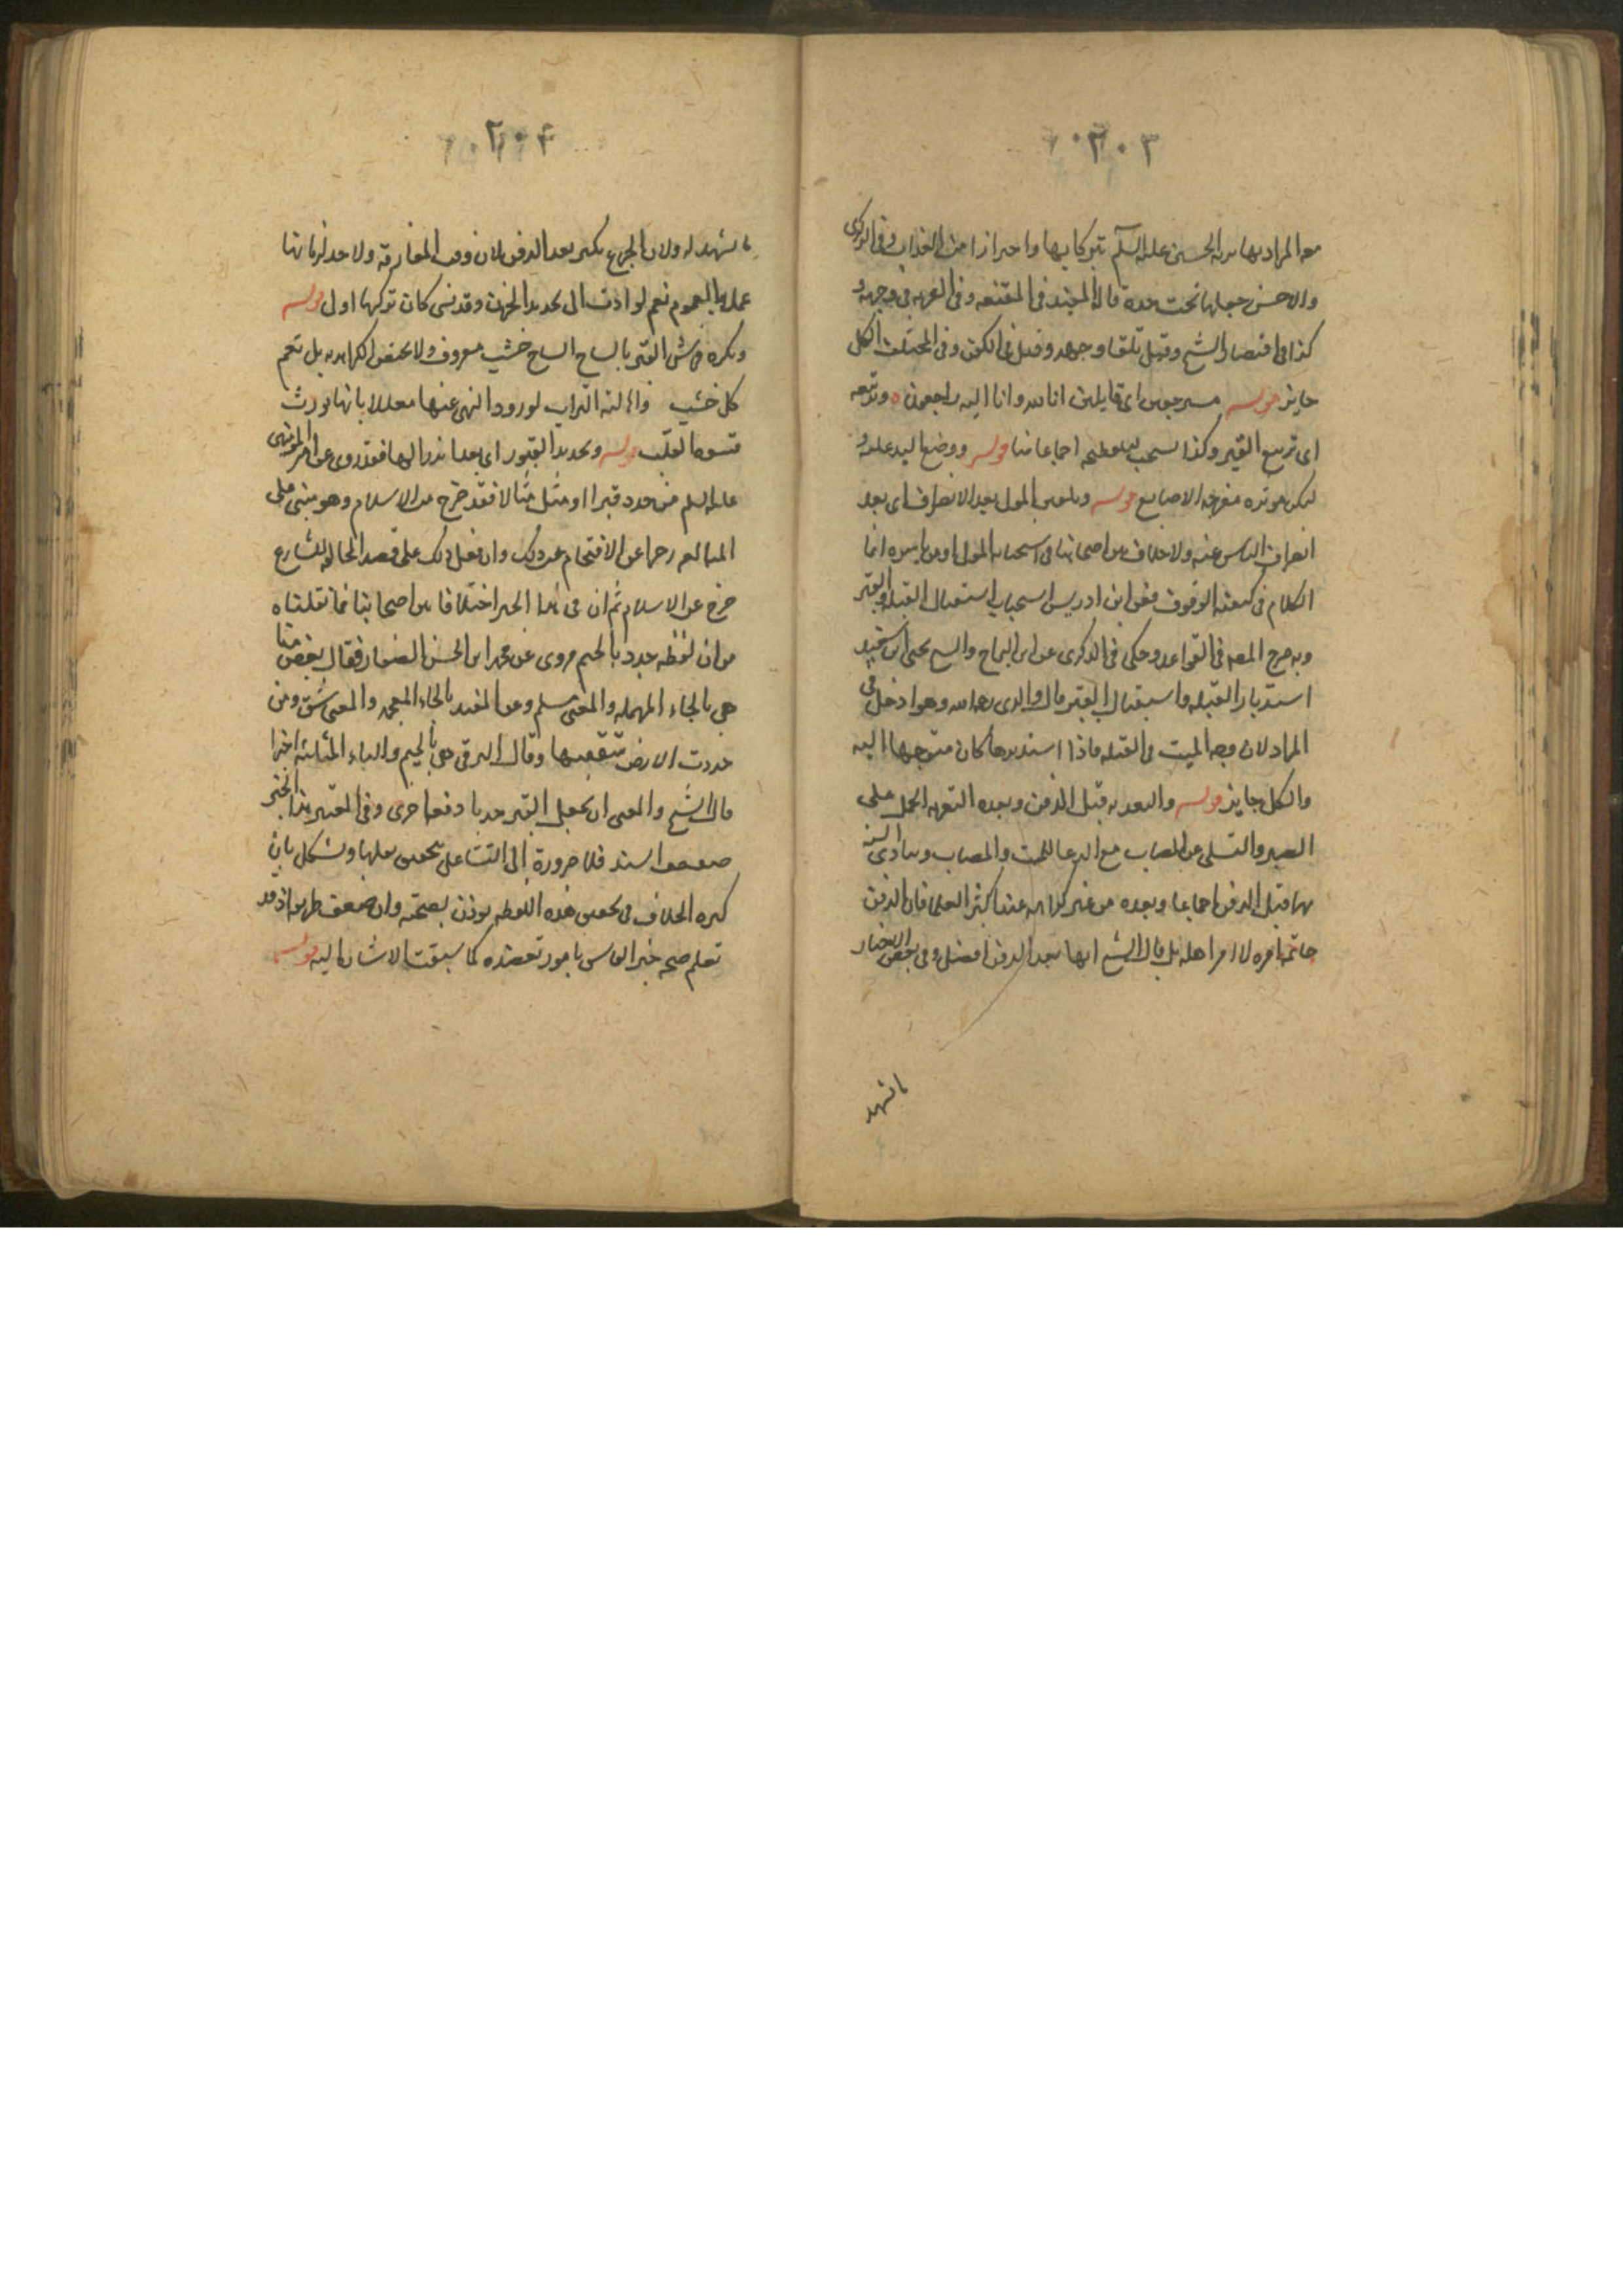 ٢٠٣
معه المراد بها تربة الحسين عليه السلم تبركا بها واحترازا من العذاب وفي الذكرى
والاحسن جعلها تحت خده قاله المفيد في المقنعه وفي العزيه في وجهه و
كذا في اقتصاد الشيخ وقيل تلقاء وجهه وقيل في الكفن وفي المختلف الكل
جايز قوله مسترجعين اى قايلين انا لله وانا اليه راجعون ه وتربيعه
اى تربيع القبر وكذا يستحب تسطيحه اجماعا منا قوله ووضع اليد عليه و
لتكن موثره مفرجه الاصابع قوله وتلقين الولى بعد الانصراف اى بعد
انصراف الناس عنه ولا خلاف بين اصحابنا في استحبابه للولى او من يامره انما
الكلام في كيفيه الوقوف فعن ابن ادريس استحباب استقبال القبله والقبر
وبه صرح المصه في القواعد وحكى في الذكرى عن ابن البراج والشيخ يحيى ابن سعيد
استدبار القبله واستقبال القبر قال والدى رحمه الله وهو ادخل في
المراد لان وجه الميت في القبله فاذا استدبرها كان متوجها اليه
والكل جايز قوله والتعزيه قبل الدفن وبعده التعزيه الحمل على
الصبر والتسلى عن المصاب مع الدعا للميت والمصاب وتتادى السنه
بها قبل الدفن اجماعا وبعده من غير كراهه عند اكثر العلما فان الدفن
خاتمة امره لا امر اهله بل قال الشيخ انها بعد الدفن افضل وفي بعض الاخبار
ما تشهد
٢٠٤
ما تشهد له ولان الجزع يكثر بعد الدفن لانه وقت المفارقه ولا حد لزمانها
عملا بالعموم نعم لو ادت الى تجديد الحزن وقد نسى كان تركها اولى قوله
ويكره فرش القبر بالساج الساج خشب معروف ولا يختص الكراهه به بل تعم
كل خشب وإهالته التراب لورود النهى عنها معللا بانها تورث
قسوة القلب قوله وتجديد القبور اى بعد اندراسها فقد روى عن امير المومنين
عليه السلم من جدد قبرا او مثل مثالا فقد خرج من الاسلام وهو مبنى على
المبالغه زجرا عن الاقتحام على ذلك وان فعل ذلك على قصد المخالفه للشارع
خرج عن الاسلام ثم ان في هذا الخبر اختلافا بين اصحابنا فما نقلناه
من ان لفظه جدد بالجيم مروى عن محمد ابن الحسن الصفار فقال بعض منا
هى بالحاء المهمله والمعنى سلم وعن المفيد بالخاء المعجمه والمعنى شق ومن
خددت الارض شققتها وقال البرقى هى بالجيم والثاء المثلثه اخيرا
قال الشيخ والمعنى ان يجعل القبر جدثا دفعا اخرى وفي المعتبر هذا الخبر
ضعيف السند فلا ضرورة الى التشاغل بتحقيق نقلها ويشكل بان
كثره الخلاف في تحقيق هذه اللفظه يوذن بصحته وان ضعف طريقه اذ قد
تعلم صحه خبر الفاسق بامور تعضده كما سبقت الاشاره اليه قوله